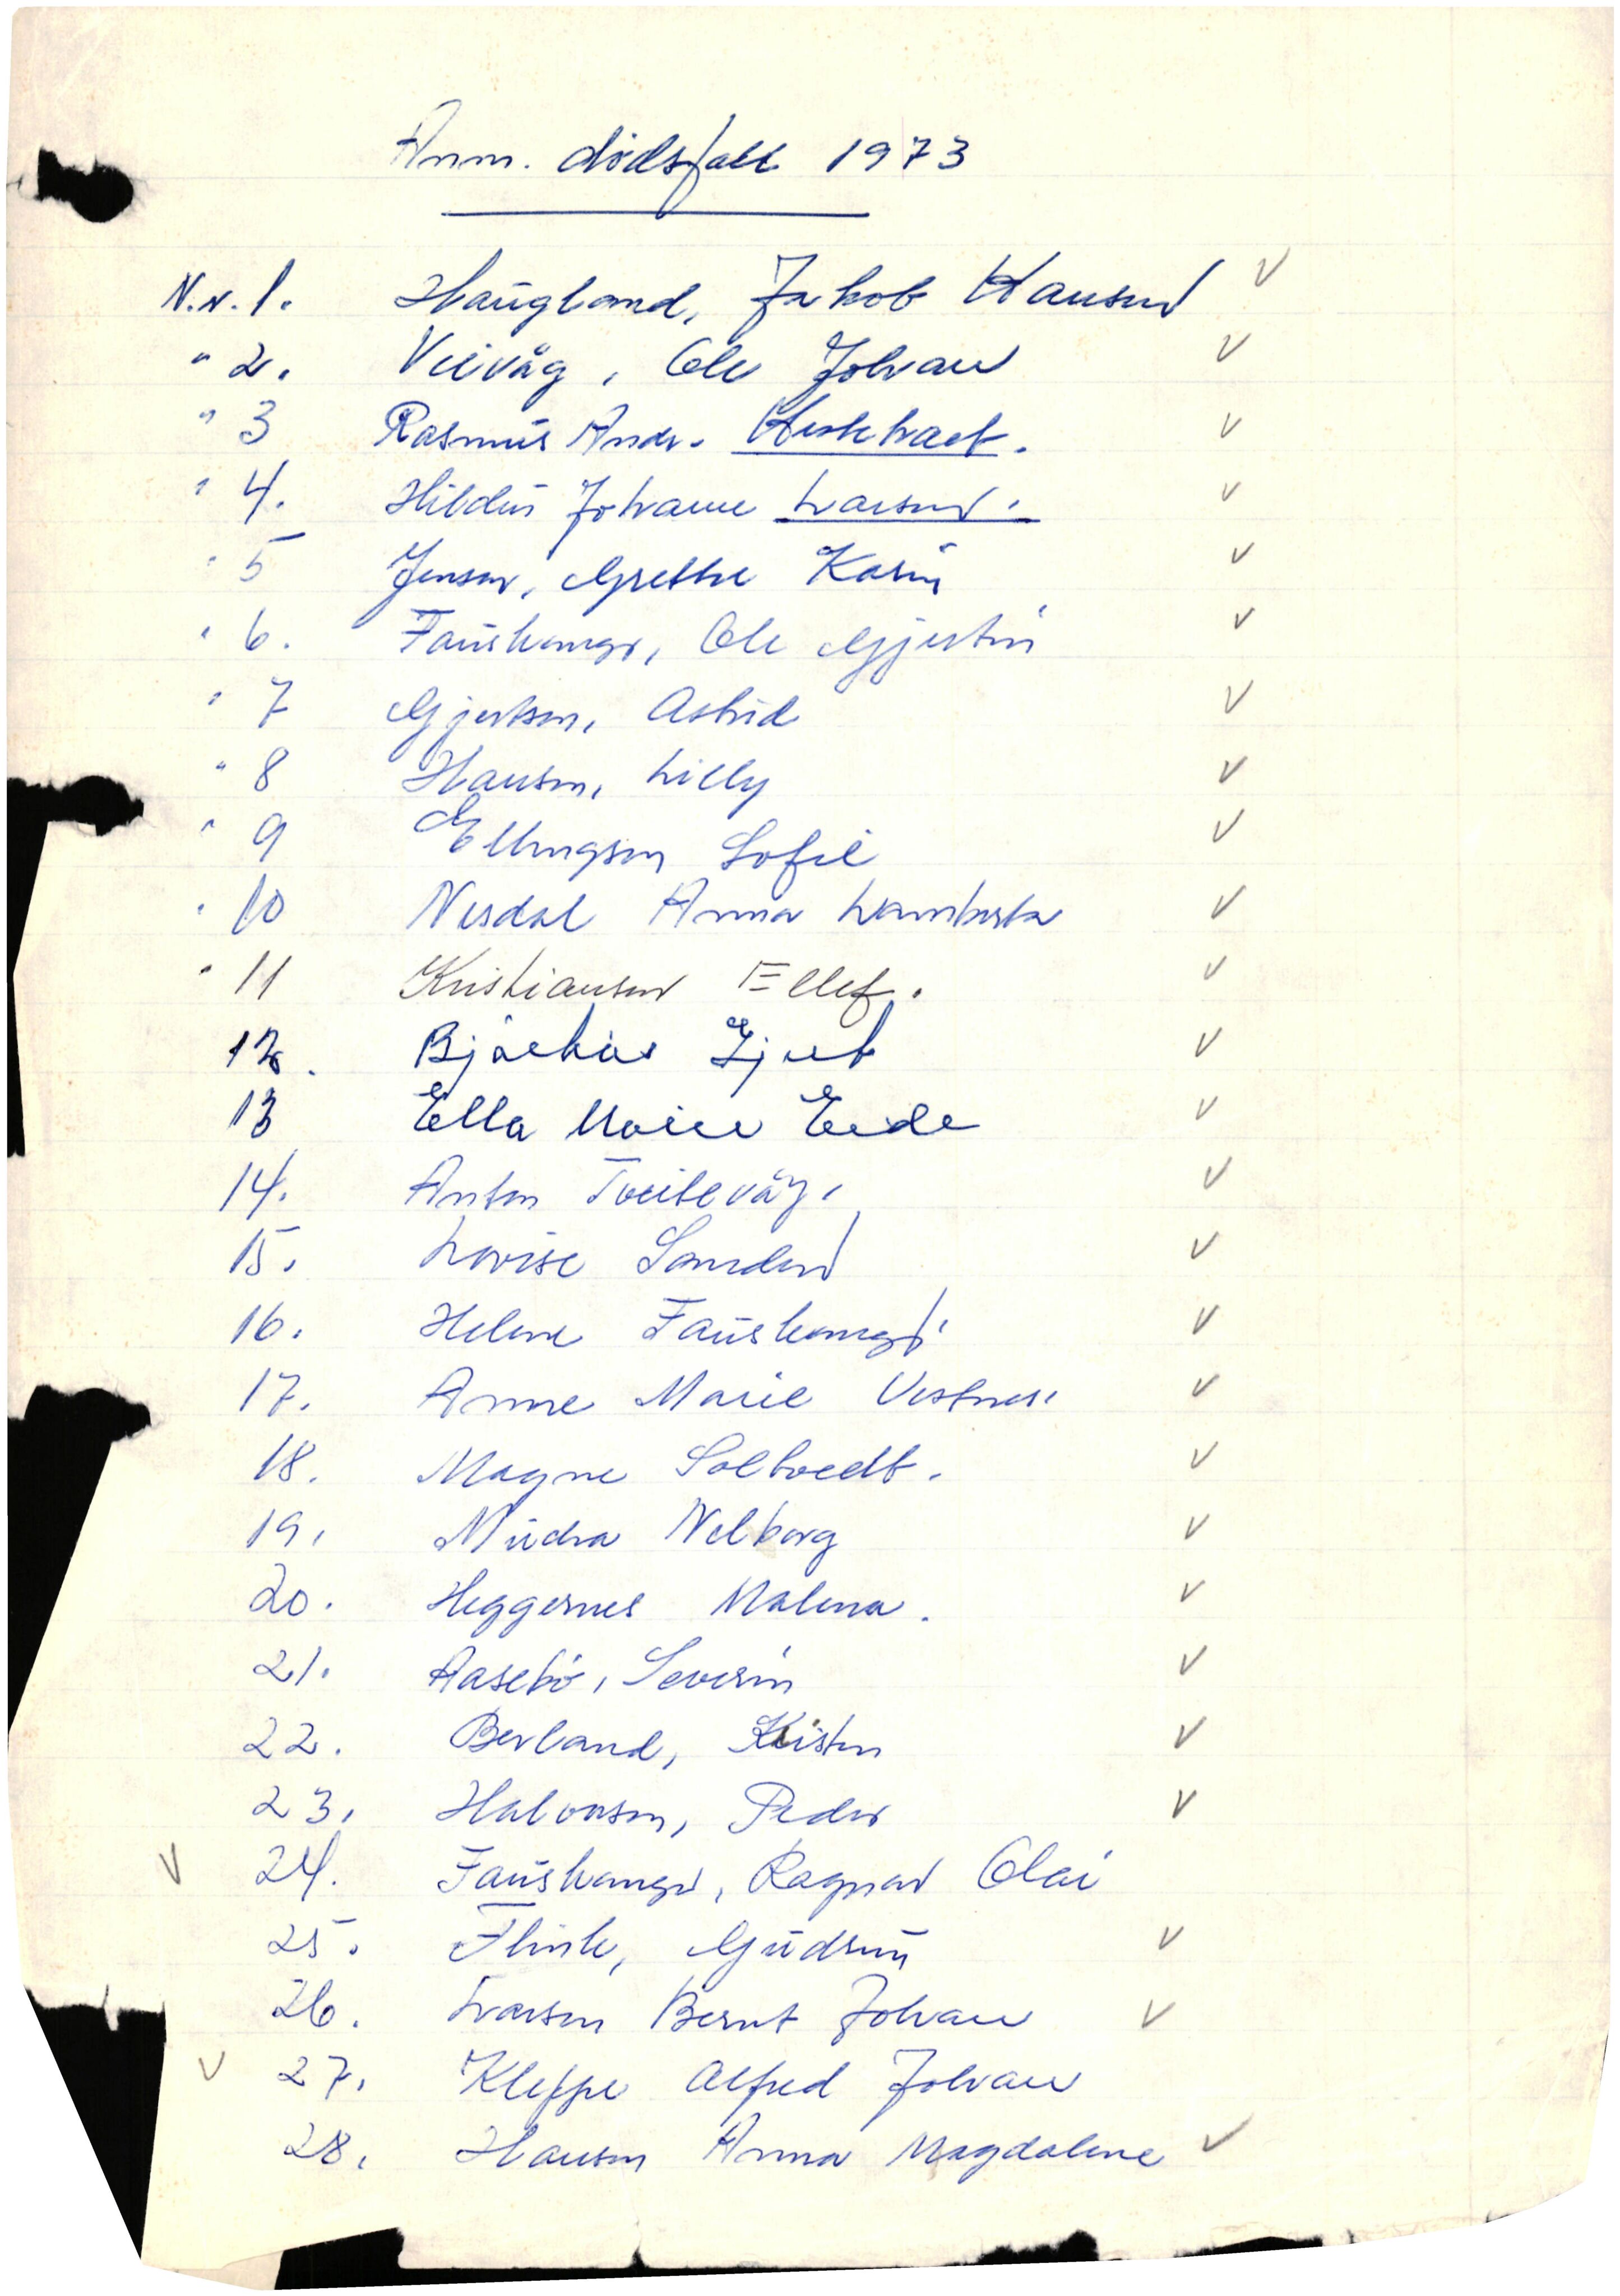 Anm. dödsfall 1973
N.N. 1. Haugland, Jakob Hansen V
" 2. Veivåg, Ole Johan V
" 3 Rasmus Andr. V
" 4. Hildur Johanne Larsen. V
" 5 Jensen, Grethe Karin V
" 6. Fauskanger, Ole Gjertin V
" 7 Gjertsen, Astrid V
" 8 Hansen, Lilly V
" 9 Ellingsen Sofie V
" 10 Nesdal Anna Lamberta V
" 11 Kristiansen Ellef. V
12. Gjert V
13 Ella Marie Eide V
14. Anton Tveitevåg. V
15. Lovise Sanden V
16. Helene Fauskanger V
17. Anne Marie Vestnes. V
18. Magne Soltvedt. V
19. Nelborg V
20. Heggernes Malena. V
21. Aasebö, Severin V
22. Berland, Kristen V
23. Halvorsen, Peder V
V 24. Fauskanger, Ragnar Olai
25. Flink, Gudrun V
26. Larsen Bernt Johan V
V 27. Kleppe Alfred Johan
28. Hansen Anna Magdalene V